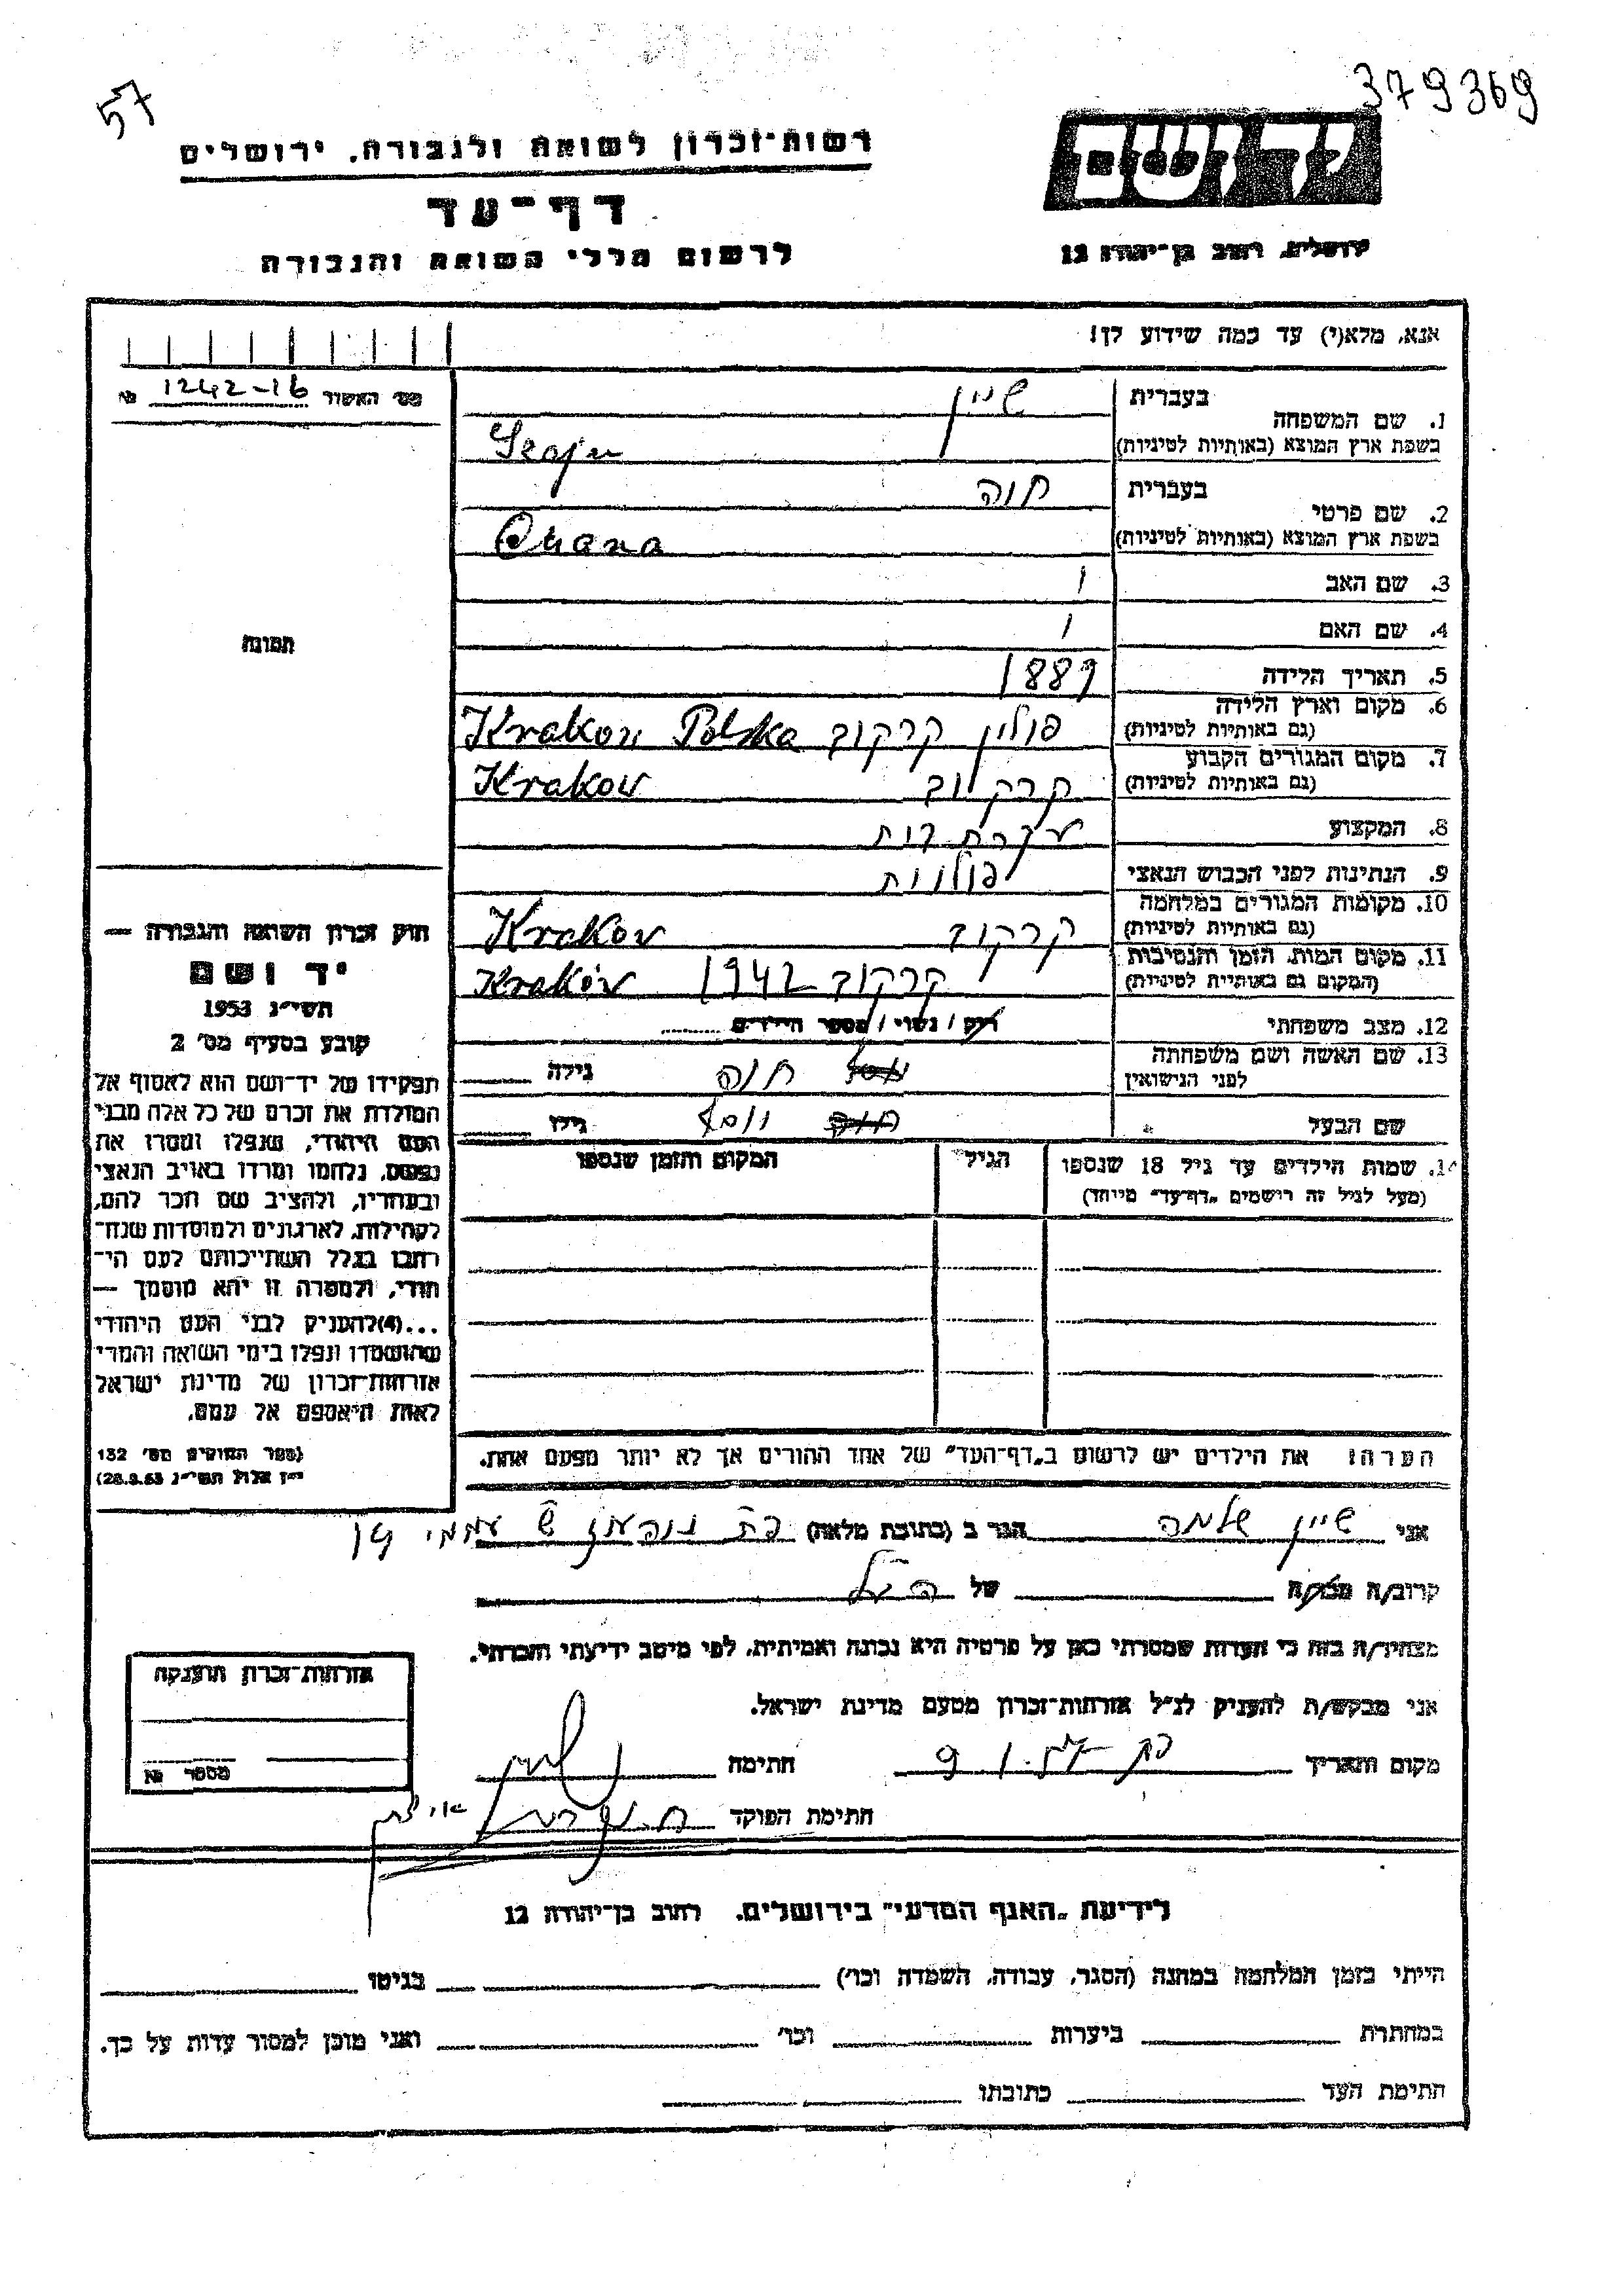 57
379369
רשות־זכרון לשואה ולגבורה, ירושלים
יד ושם
דף־עד
לרשום חללי השואה והגבורה
ירושלים, רחוב בן־יהודה 12
אנא, מלא(י) עד כמה שידוע לך!
מס׳ האשור № 1242-16
1. שם המשפחה
בעברית שיין
בשפת ארץ המוצא (באותיות לטיניות) Szajn
2. שם פרטי
בעברית חוה
בשפת ארץ המוצא (באותיות לטיניות)
3. שם האב
4. שם האם
5. תאריך הלידה 1889
6. מקום וארץ הלידה
(גם באותיות לטיניות) פולין קרקוב Krakow Polska
7. מקום המגורים הקבוע
(גם באותיות לטיניות) קרקוב Krakow
8. המקצוע עקרת בית
9. הנתינות לפני הכבוש הנאצי פולנית
10. מקומות המגורים במלחמה
(גם באותיות לטיניות) קרקוב Krakov
11. מקום המות, הזמן והנסיבות
(המקום גם באותיות לטיניות) קרקוב 1942 Kraków
12. מצב משפחתי רוק / נשוי / מספר הילדים
13. שם האשה ושם משפחתה
לפני הנישואין חוה גילה
שם הבעל יוסף גילו
14. שמות הילדים עד גיל 18 שנספו
(מעל לגיל זה רישמים „דף־עד” מייוחד)
הגיל
המקום והזמן שנספו
תמונה
חוק זכרון השואה והגבורה —
יד ושם
תשי״ג 1953
קובע בסעיף מס׳ 2
תפקידו של יד־ושם הוא לאסוף אל
המולדת את זכרם של כל אלה מבני
העם היהודי, שנפלו ומסרו את
נפשם, נלחמו ומרדו באויב הנאצי
ובעוזריו, ולהציב שם וזכר להם,
לקהילות, לארגונים ולמוסדות שנח־
רבו בגלל השתייכותם לעם הי־
הודי, ולמטרה זו יהא מוסמך —
...(4)להעניק לבני העם היהודי
שהושמדו ונפלו בימי השואה והמרי
אזרחות־זכרון של מדינת ישראל
לאות היאספם אל עמם.
(ספר החוקים מס׳ 132
י״ז אלול תשי״ג 28.8.53)
הערה: את הילדים יש לרשום ב„דף־העד” של אחד ההורים אך לא יותר מפעם אחת.
אני שיין שלמה הגר ב (כתובת מלאה) בת
קרוב/ה מכר/ה של
מצהיר/ה בזה כי העדות שמסרתי כאן על פרטיה היא נכונה ואמיתית, לפי מיטב ידיעתי והכרתי.
אני מבקש/ת להעניק לנ״ל אזרחות־זכרון מטעם מדינת ישראל.
מקום ותאריך בת ים חתימה שיין
חתימת הפוקד
אזרחות־זכרון הוענקה
מספר №
לידיעת „האגף המדעי” בירושלים, רחוב בן־יהודה 12
הייתי בזמן המלחמה במחנה (הסגר, עבודה, השמדה וכו׳) בגיטו
במחתרת ביערות וכו׳ ואני מוכן למסור עדות על כך.
חתימת העד כתובתו